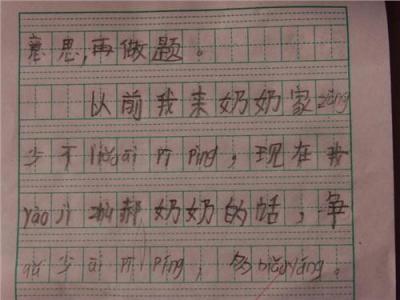 意思,再做题。
以前我来奶奶家zǒng
少不liǎo ái pī píng，现在我
yào jì 郝奶奶的话，争
qǔ 少 ái pī píng，多 biǎo yáng。